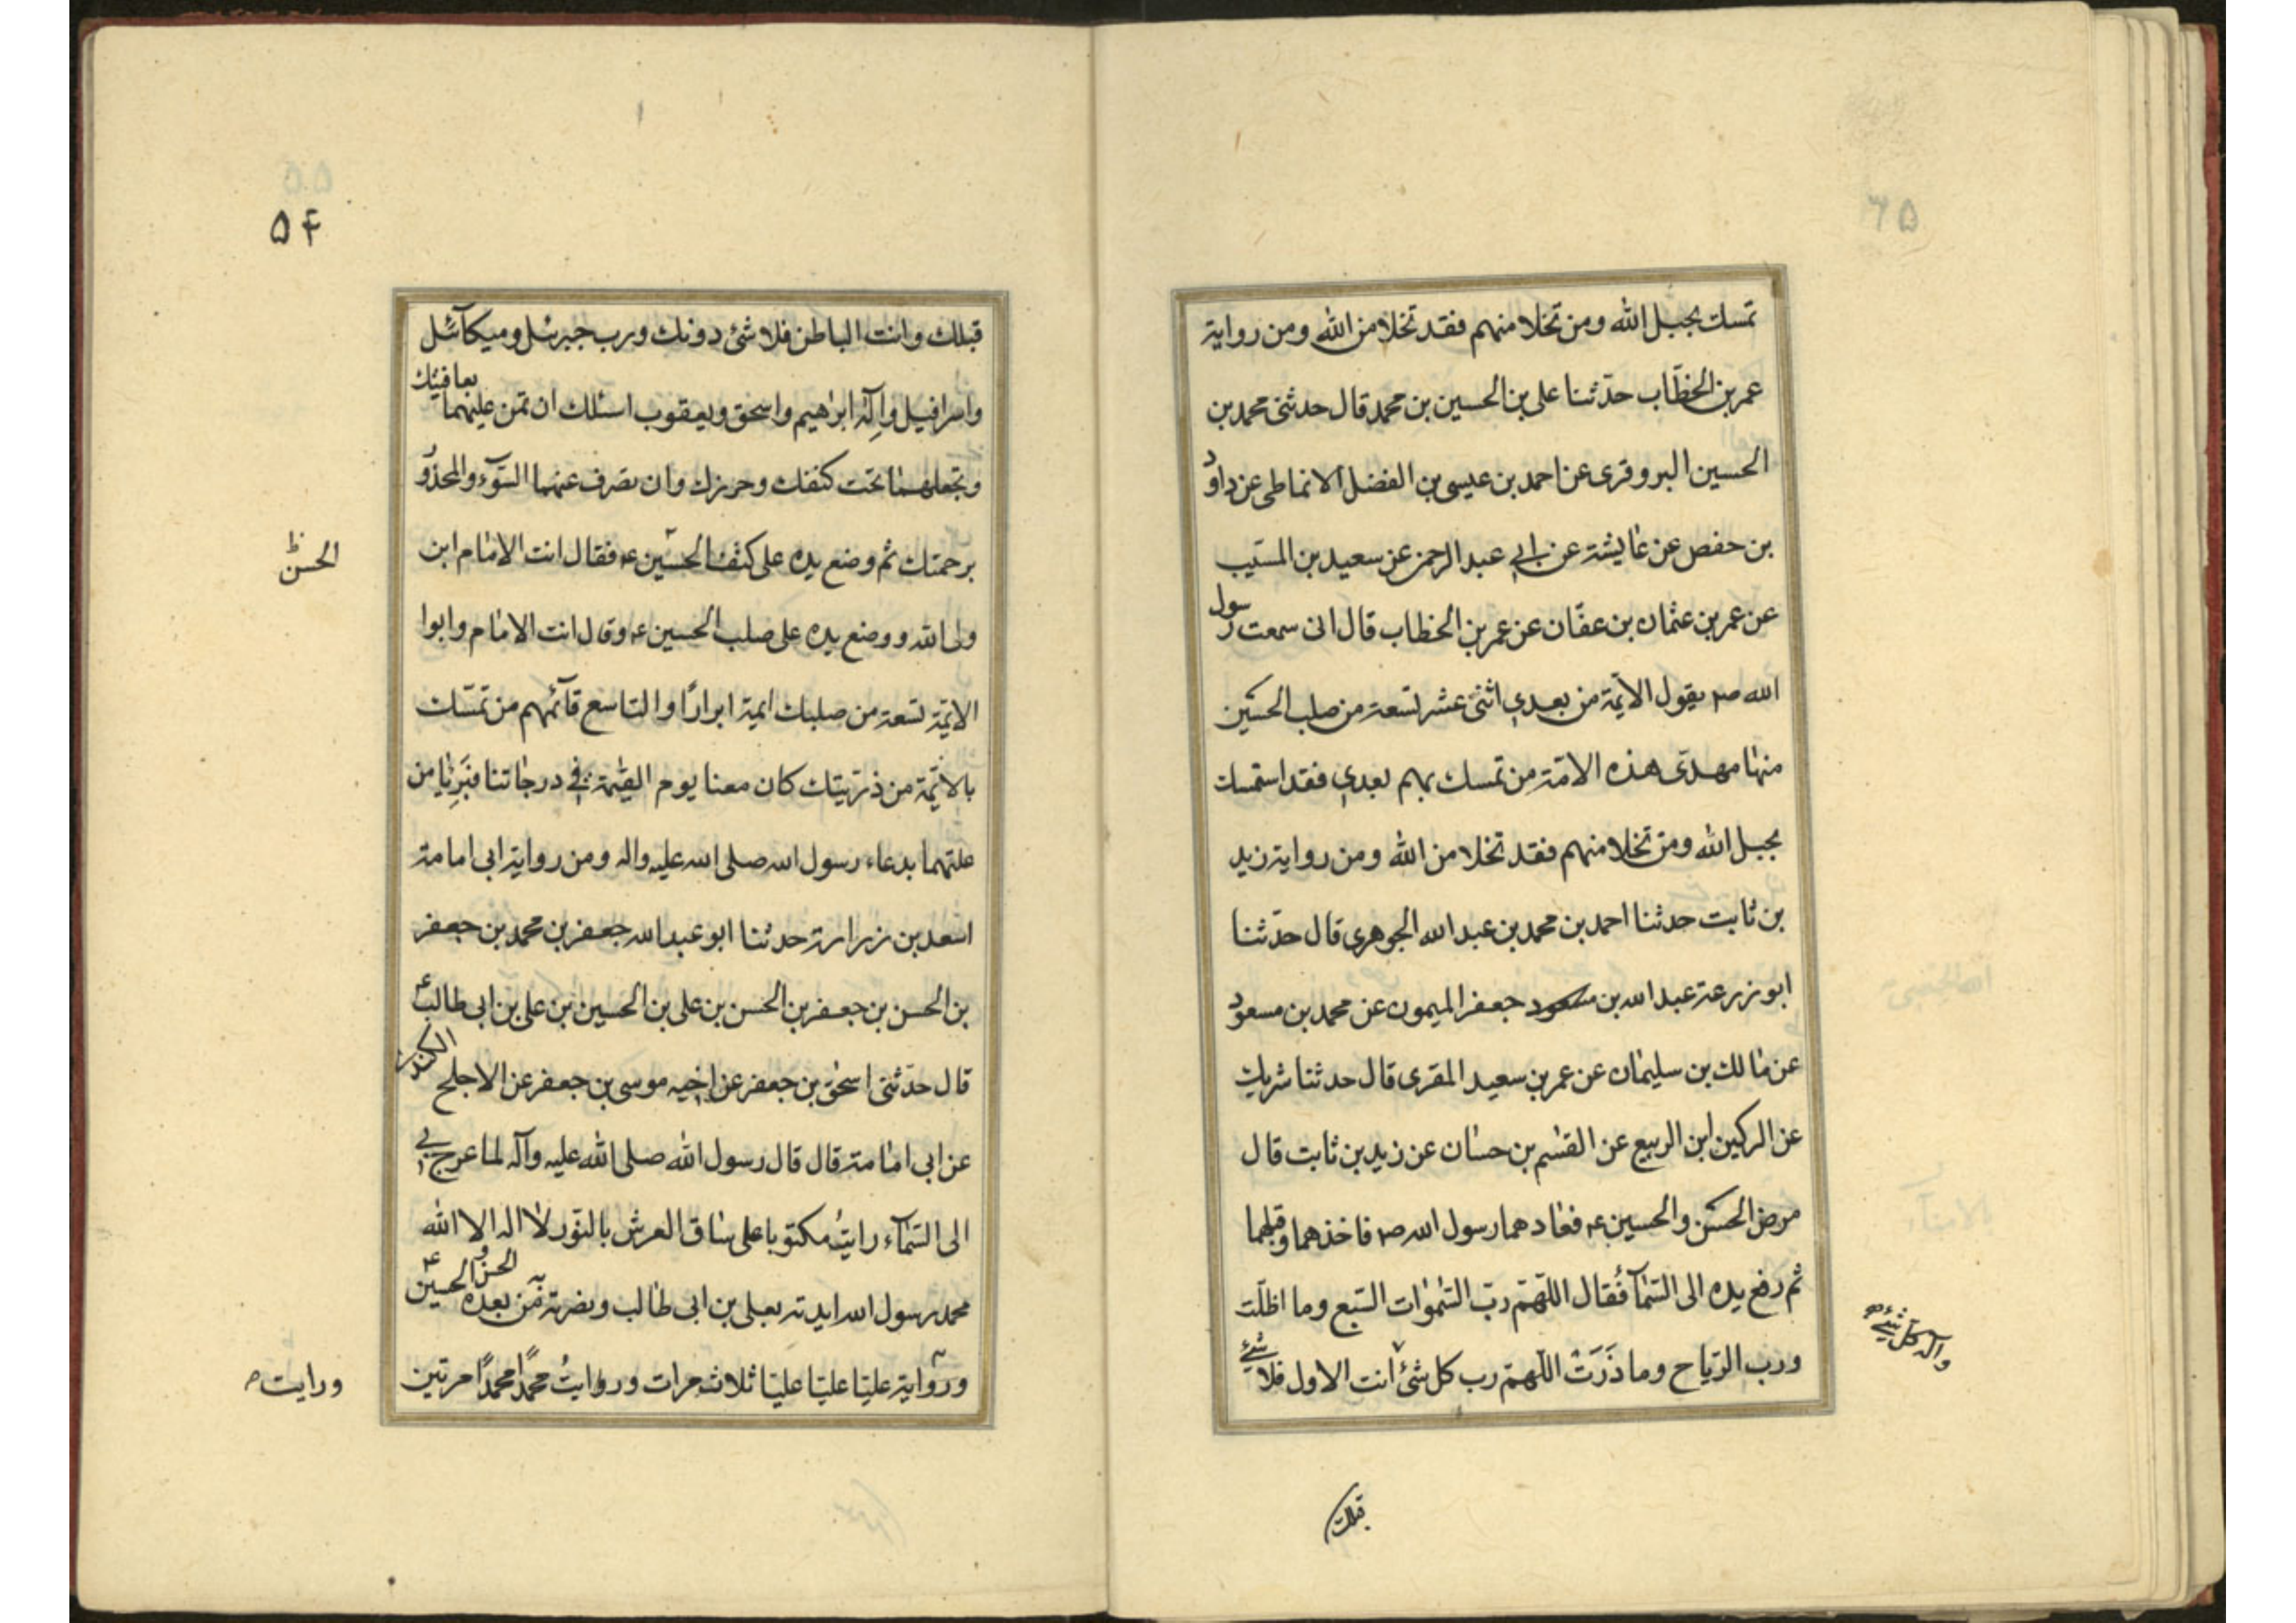 تمسك بحبل الله ومن تخلا منهم فقد تخلا من الله ومن رواية
عمر بن الخطاب حدثنا على بن الحسين بن محمد قال حدثنى محمد بن
الحسين البروقرى عن احمد بن عيسى بن الفضل الانماطى عن داود
بن حفص عن عايشة عن ابي عبد الرحمن عن سعيد بن المسيب
عن عمر بن عثمان بن عفان عن عمر بن الخطاب قال انى سمعت رسول
الله ص يقول الائمة من بعدي اثنى عشر تسعة من صلب الحسين
منها مهدى هذه الامة من تمسك بهم بعدي فقد استمسك
بحبل الله ومن تخلا منهم فقد تخلا من الله ومن رواية زيد
بن ثابت حدثنا احمد بن محمد بن عبد الله الجوهرى قال حدثنا
ابو زرعة عبد الله بن جعفر الميمون عن محمد بن مسعود
عن مالك بن سليمان عن عمر بن سعيد المقرى قال حدثنا شريك
عن الركين ابن الربيع عن القسم بن حسان عن زيد بن ثابت قال
مرض الحسن والحسين ع فعادهما رسول الله ص فاخذهما وقبلهما
ثم رفع يده الى السماء فقال اللهم رب السموات السبع وما اظلت
ورب الرياح وما ذرت اللهم رب كل شئ انت الاول فلا شئ
واله كل شئ
قبلك
۵۴
قبلك وانت الباطن فلا شئ دونك ورب جبرئل وميكآئل
واسرافيل واله ابراهيم واسحق ويعقوب اسئلك ان تمن عليهما بعافيتك
وتجعلهما تحت كنفك وحرزك وان تصرف عنهما السوء والمحذو
برحمتك ثم وضع يده على كتف الحسين ع فقال انت الامام ابن
الحسن ظ
ولى الله ووضع يده على صلب الحسين ع وقال انت الامام وابوا
الائمة تسعة من صلبك ايمة ابرارا والتاسع قائمهم من تمسك
بالائمة من ذريتك كان معنا يوم القيمة في درجاتنا فبريا من
علتهما بدعاء رسول الله صلى الله عليه واله ومن رواية ابى امامة
اسعد بن زرارة حدثنا ابو عبد الله جعفر بن محمد بن جعفر
بن الحسن بن جعفر بن الحسن بن على بن الحسين بن على بن ابى طالب ع
قال حدثنى اسحق بن جعفر عن اخيه موسى بن جعفر عن الاجلح الكندى
عن ابى امامة قال قال رسول الله صلى الله عليه وآله لما عرج بي
الى السمآء رايت مكتوبا على ساق العرش بالنور لا اله الا الله
محمد رسول الله ايدته بعلى بن ابى طالب ونصرته من بعده الحسن والحسين ع
ورواية عليا عليا عليا ثلاث مرات وروايت محمدا محمدا مرتين
ورايت ص